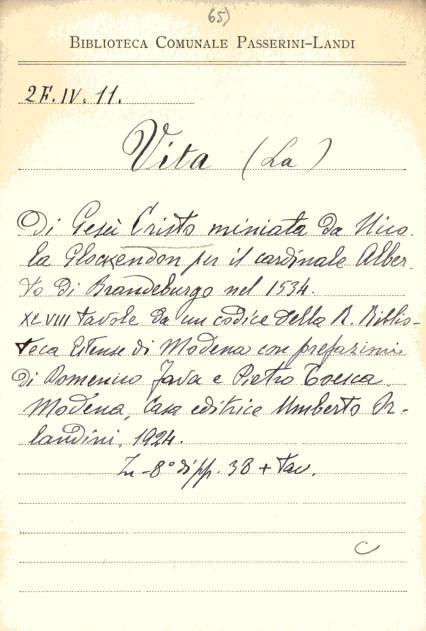 65)
BIBLIOTECA COMUNALE PASSERINI-LANDI
2F.IV.11.
Vita (La)
Di Gesù Cristo miniata da Nico-
la Glockendon per il cardinale Alber-
to di Brandeburgo nel 1534.
XLVIII tavole da un codice della R. Biblio-
teca Estense di Modena con prefazioni
di Domenico Fava e Pietro Toesca.
Modena, Casa editrice Umberto Or-
landini, 1924.
In-8° di pp. 38 + tav.
C